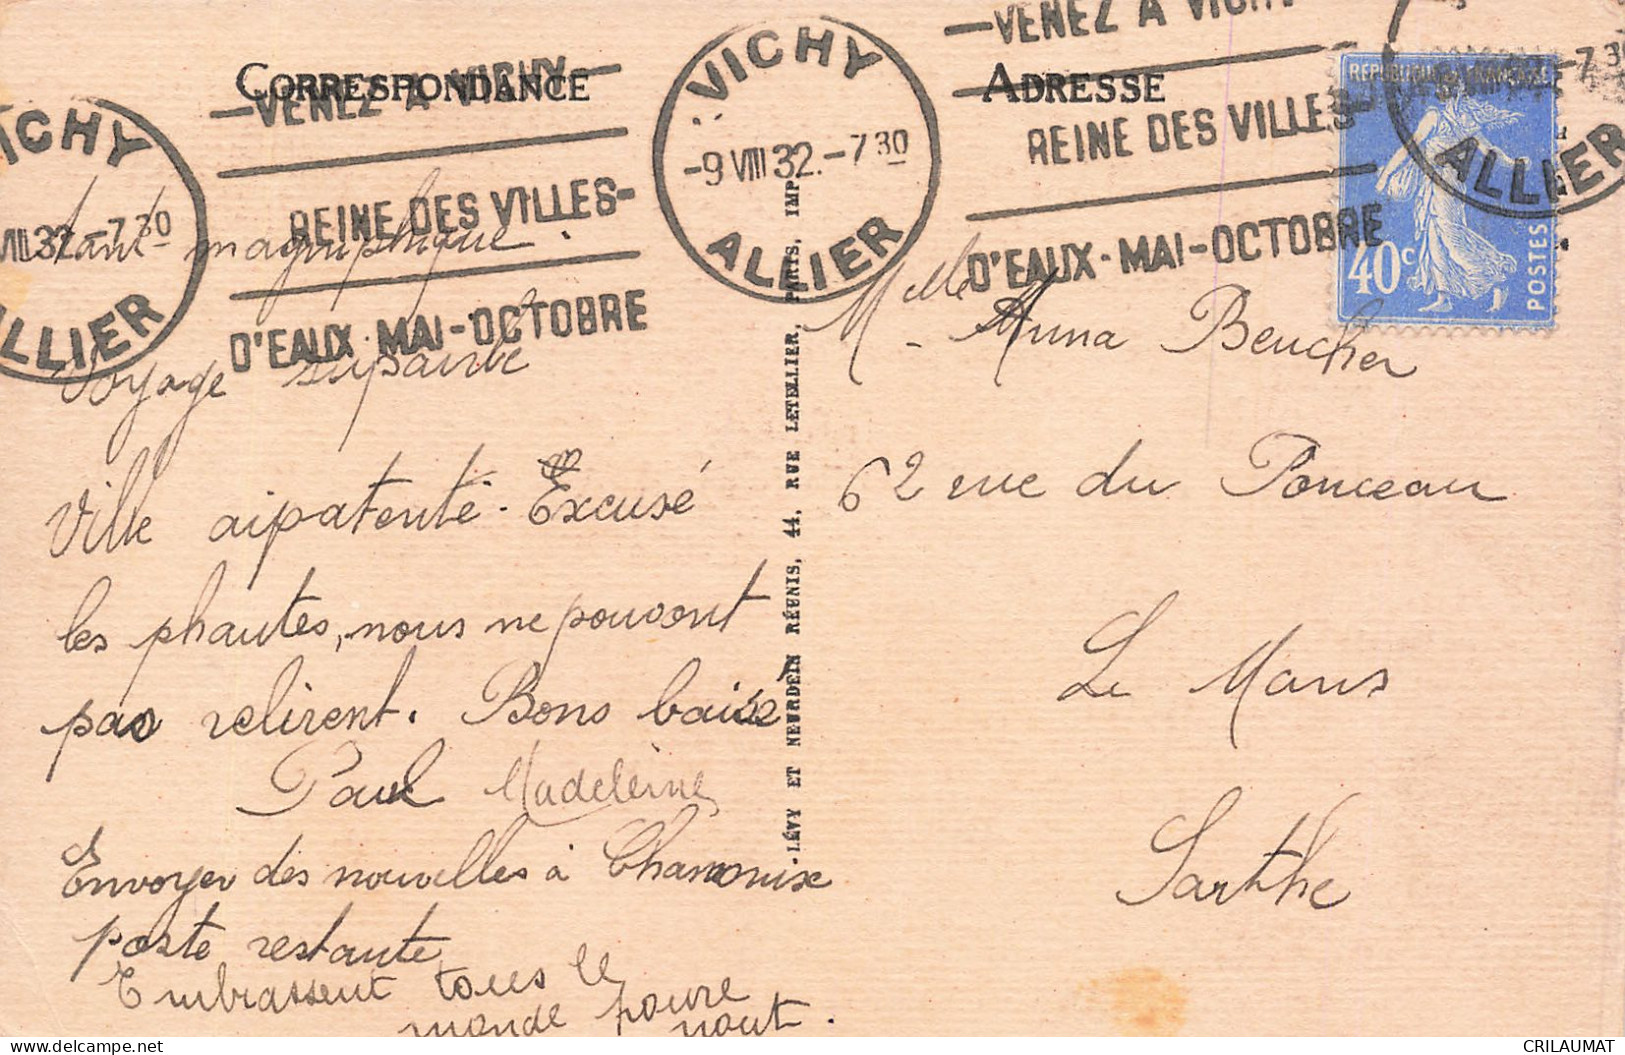 CORRESPONDANCE
ADRESSE
VENEZ A VICHY
REINE DES VILLES
D'EAUX MAI-OCTOBRE
VICHY
-9 VIII 32.-7 30
ALLIER
VENEZ A VICHY
REINE DES VILLES
D'EAUX-MAI-OCTOBRE
ICHY
VIII 32.-7 30
ALLIER
-7 30
ALLIER
REPUBLIQUE FRANÇAISE
40c
POSTES
magniphique.
Voyage
Ville aipatenté. Excusé
les phautes, nous ne pouvont
pas relirent. Bons baisé
Paul Madeleine
Envoyer des nouvelles à Chamonix
poste restante
Embrassent tous le
monde pour
nout.
-LÉVY ET NEURDEIN RÉUNIS, 44, RUE LETELLIER, PARIS, IMP
Melle Anna Beucher
62 rue du Ponceau
Le Mans
Sarthe
CRILAUMAT